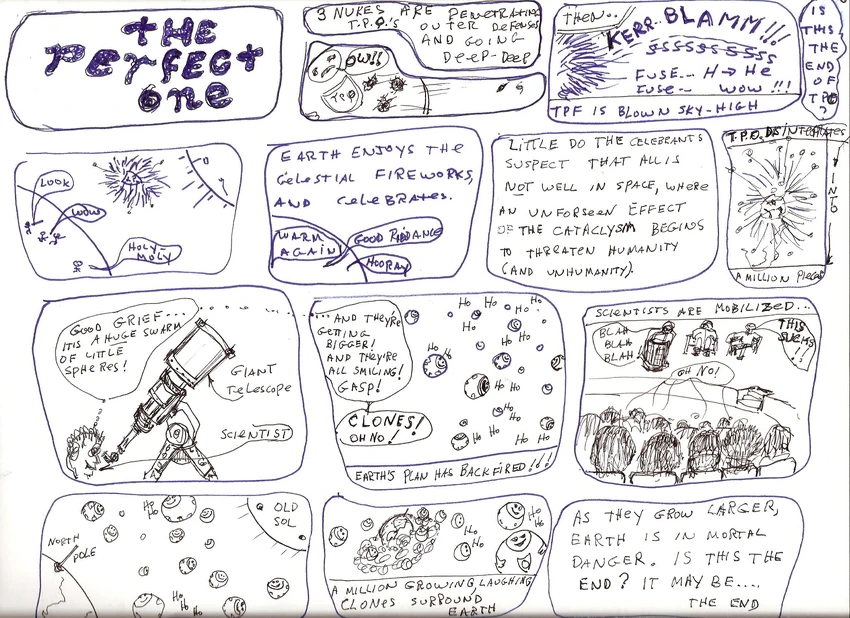 THE
PERFECT
ONE
3 NUKES ARE PENETRATING
T.P.O.'S OUTER DEFENSES
AND GOING
DEEP-DEEP
OW!!
TPO
THEN..
KERR-BLAMM!!!
SSSSSSSSSS
FUSE... H → He
FUSE... WOW!!!
TPF IS BLOWN SKY-HIGH
IS
THIS
THE
END
OF
TPO
?
LOOK
WOW
HOLY-
MOLY
EARTH ENJOYS THE
CELESTIAL FIREWORKS,
AND CELEBRATES.
WARM
AGAIN
GOOD RIDDANCE
HOORAY
LITTLE DO THE CELEBRANTS
SUSPECT THAT ALL IS
NOT WELL IN SPACE, WHERE
AN UNFORSEEN EFFECT
OF THE CATACLYSM BEGINS
TO THREATEN HUMANITY
(AND UNHUMANITY).
T.P.O. DISINTEGRATES
INTO
A MILLION PIECES
GOOD GRIEF...
ITS A HUGE SWARM
OF LITTLE
SPHERES!
GIANT
TELESCOPE
SCIENTIST
...AND THEY'RE
GETTING
BIGGER!
AND THEY'RE
ALL SMILING!
GASP!
CLONES!
OH NO!!
Ho
Ho
Ho
Ho
Ho
Ho
Ho
Ho
Ho
Ho
Ho
Ho
Ho
EARTH'S PLAN HAS BACKFIRED!!!
SCIENTISTS ARE MOBILIZED...
BLAH
BLAH
BLAH!
THIS
SUCKS
!!
OH NO!
NORTH
POLE
Ho
Ho
Ho
Ho
Ho
Ho
OLD
SOL
Ho
Ho
Ho
Ho
Ho
A MILLION GROWING, LAUGHING
CLONES SURROUND
EARTH
AS THEY GROW LARGER,
EARTH IS IN MORTAL
DANGER. IS THIS THE
END? IT MAY BE....
THE END